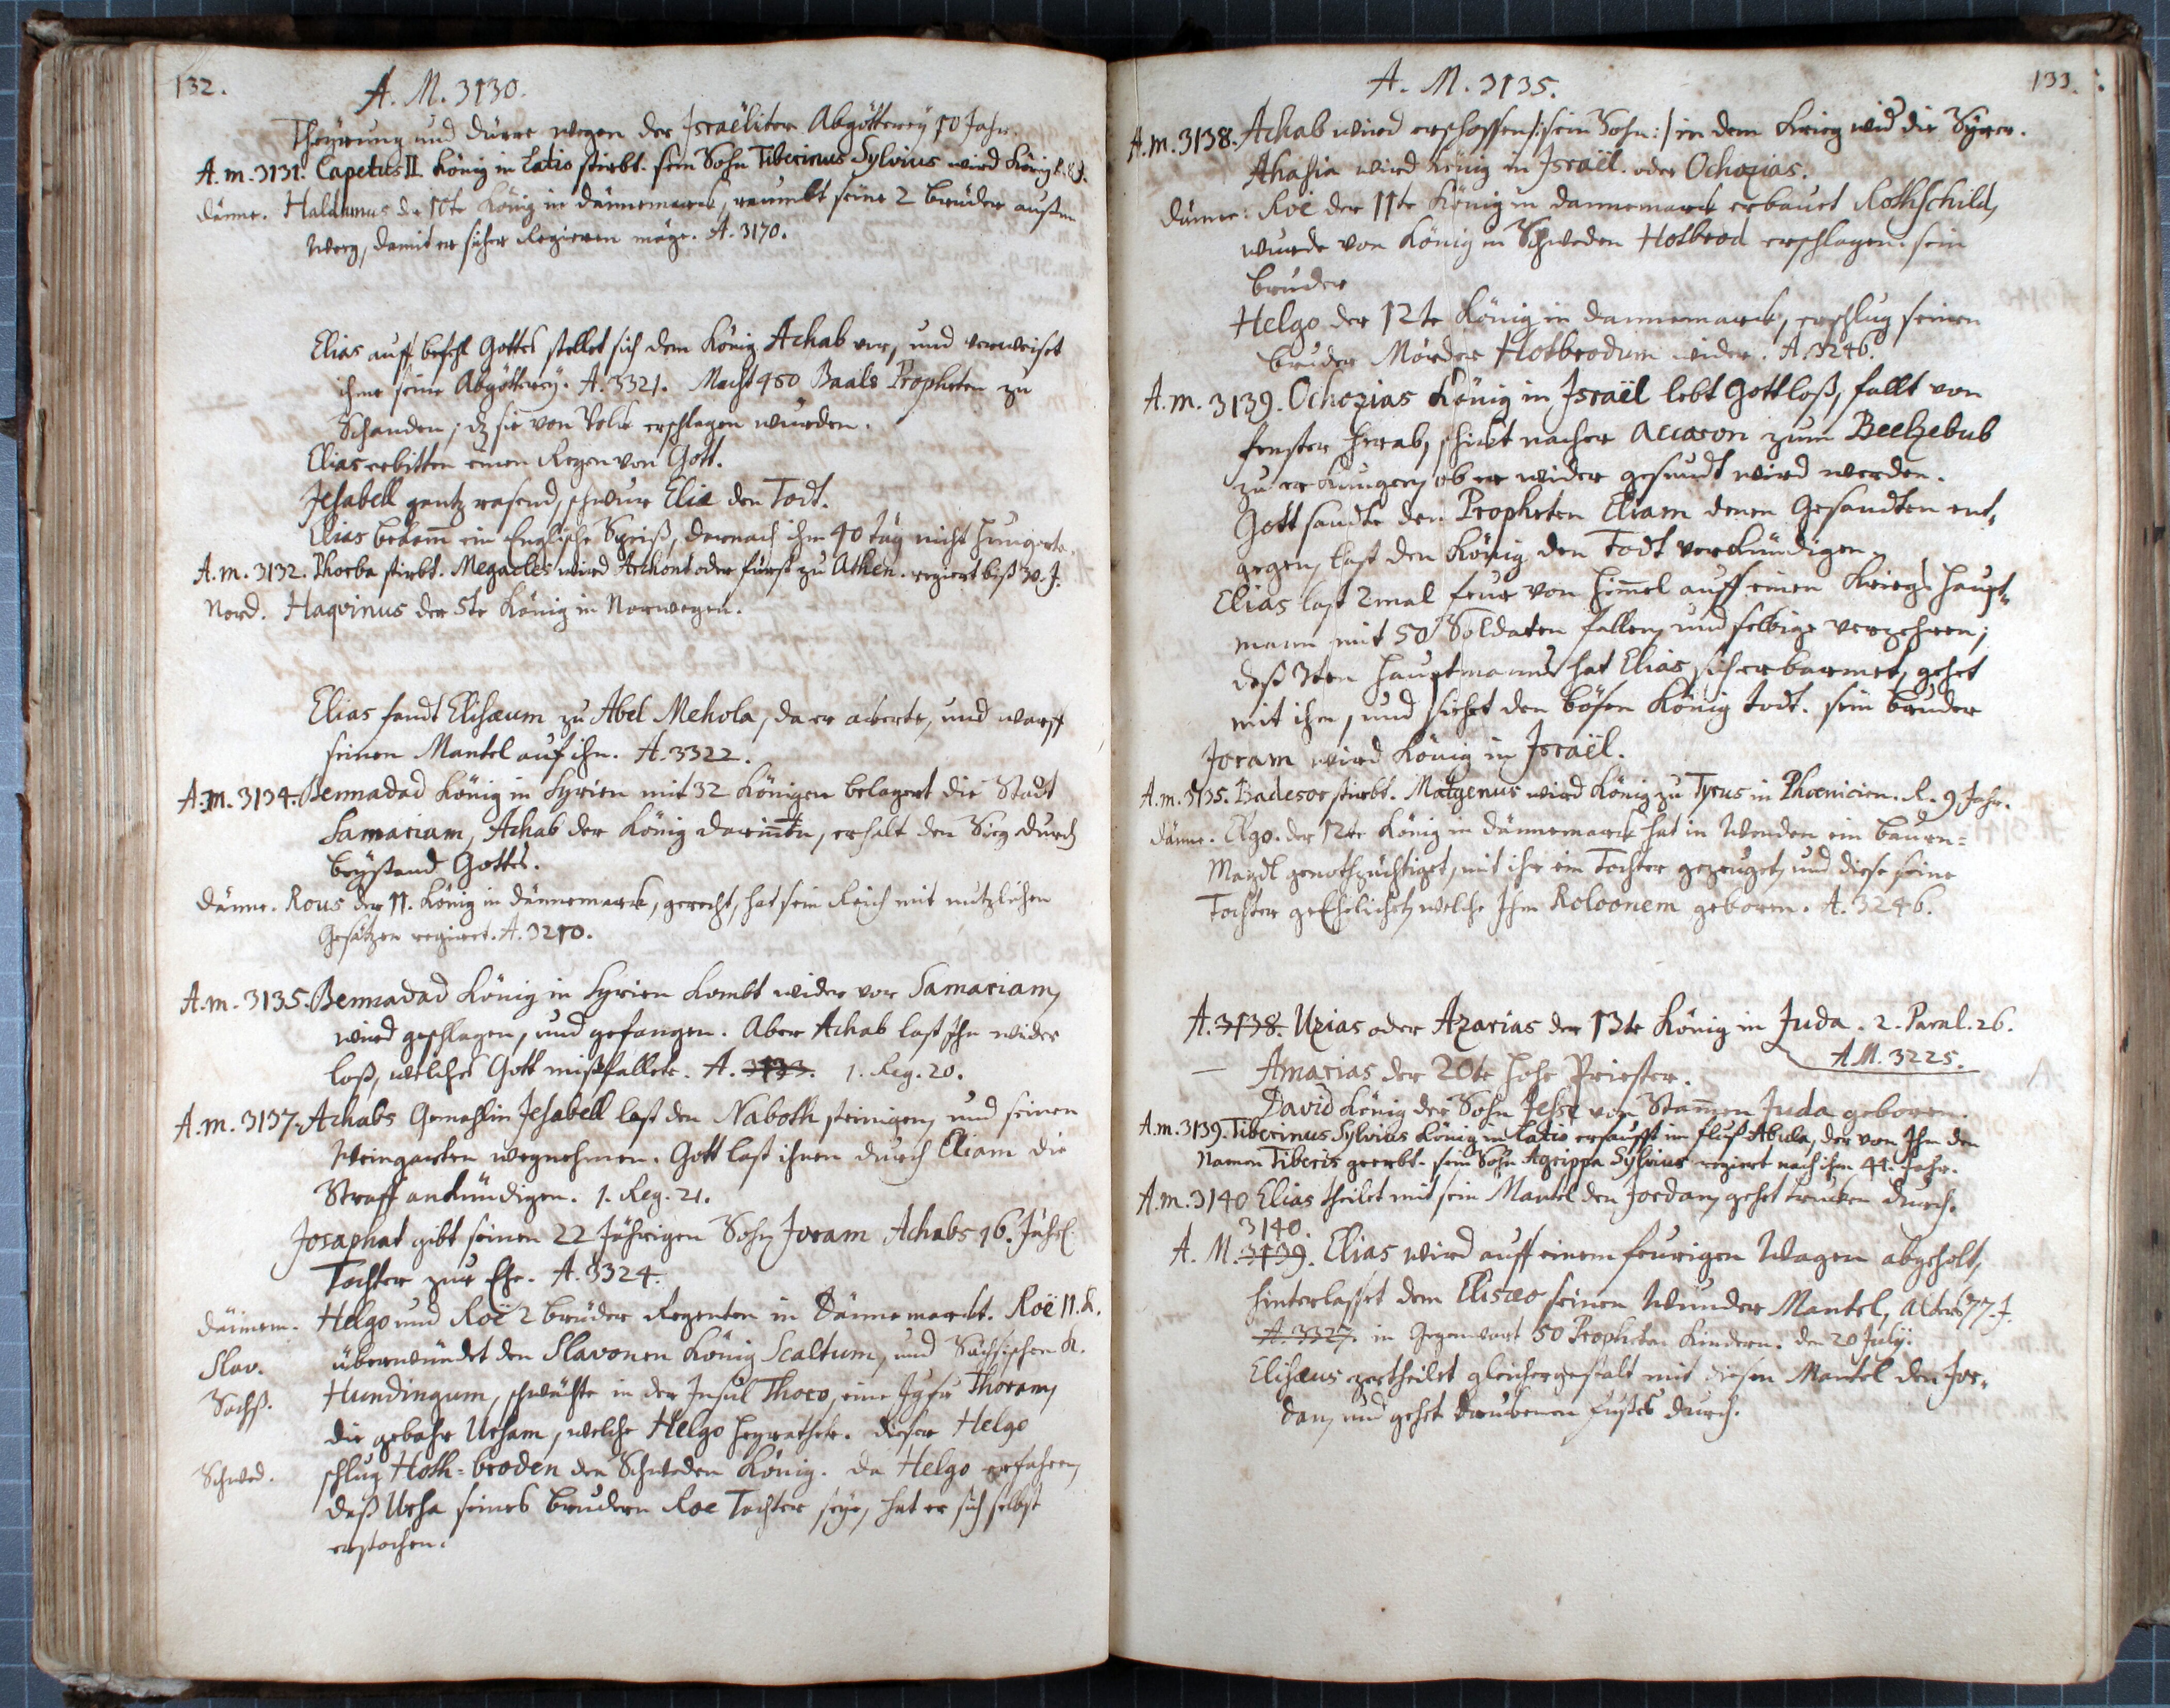 132.
A. M. 3130.
Theürung und dürre wegen der Israëliter Abgötterey 10 Jahr.
A. m. 3131. Capetus II. König in Latio stirbt. sein Sohn Tiberinus Sylvius wird König
dänne. Haldanus der 10te König in dännemarck, raumbt seine 2 brüder auß dem
weeg, damit er sicher Regieren möge. A. 3170.
Elias auff befehl Gottes stellet sich dem König Achab vor, und verweiset
ihme seine Abgötterey. A. 3321. Macht 450 Baals Propheten zu
Schanden; dz sie von Volck erschlagen wurden.
Elias erbitten einen Regen von Gott.
Jesabell gantz rasend, schwur Eliæ den Todt.
Elias bekom̄ ein Englische Speiß, darnach ihm 40 täg nicht hungerte.
A. m. 3132. Phorba stirbt. Megacles wird Archont oder fürst zu Athen. regiert biß 30. J.
Nord. Haqvinus der 5te König in Norwegen.
Elias fandt Elisæum zu Abel Mehola, da er ackerte, und warff
seinen Mantel auf ihn. A. 3322.
A. m. 3134. Bennadad König in Syrien mit 32 Königen belagert die Stadt
Samariam, Achab der König darinnen, erhalt den Sieg durch
beystand Gottes.
dänne. Rous der 11. König in dännemarck, gerecht, hat sein Reich mit nutzlichen
Gesätzen regiret. A. 3210.
A. m. 3135. Bennadad König in Syrien kombt wider vor Samariam,
wird geschlagen, und gefangen. Aber Achab last Ihn wider
loß, welches Gott mißfallete. A. 3133. 1. Reg. 20.
A. m. 3137. Achabs Gemahlin Jesabell last den Naboth steinigen, und seinen
Weingarten wegnehmen. Gott last ihnen durch Eliam die
Straff ankündigen. 1. Reg. 21.
Josaphat gibt seinen 22 Jährigen Sohn Joram Achabs 16. Jährl.
Tochter zur Ehe. A. 3324.
dännem. Helgo und Roë 2 brüder Regenten in Dännemarckt. Roë 11. K.
Slav. überwündet den Slavonen König Scaltum, und Sächsischen K.
Sachß. Hundingum, schwächte in der Insul Thoro, eine Jgfr Thoram,
die gebahr Ursam, welche Helgo heyrathete. dieser Helgo
Schwed. schlug Hoth-broden den Schweden König. da Helgo erfahren,
daß Ursa seines brudern Roe Tochter seye, hat er sich selbst
erstochen.
133.
A. M. 3135.
A. m. 3138. Achab wird erschossen /: sein Sohn :/ in dem Krieg wid die Syrer.
Ahasia wird König in Israël. oder Ochozias.
dänne: Roë der 11te König in dannemarck erbauet Rothschild,
wurde von König in Schweden Hotbrod erschlagen. sein
bruder
Helgo der 12te König in dannemarck, erschlug seinen
bruder Mörder Hotbrodum wider. A. 3246.
A. m. 3139. Ochozias König in Israël lebt Gottloß, fallt von
fenster herab, schickt nacher Accaron zum Beelzebub
zu erkunigen, ob er wider gesundt wird werden.
Gott sandte den Propheten Eliam denen Gesandten ent,
gegen, last den König den Todt verkündigen.
Elias last 2mal feur von himmel auff einen Kriegs haupt-
mann mit 50 Soldaten fallen, und selbige verzehren;
deß 3ten hauptmanns hat Elias sich erbarmet, gehet
mit ihm, und siehet den bösen König todt. sein bruder
Joram wird König in Israël.
A. m. 3135. Badesor stirbt. Matgenus wird König zu Tyrus in Phoenicien. R. 9 Jahr.
dänne. Elgo. der 12te König in dännemarck hat in Wenden ein bauren-
Magdl genothzüchtiget, mit ihr ein Tochter gezeuget, und diese seine
Tochter geEhelichet, welche Ihm Roloonem geboren. A. 3246.
A. 3138. Uzias oder Azarias der 13te König in Juda. 2. Paral. 26.
A M. 3225.
— Amarias der 20te hohe Priester.
David König der Sohn Jesse von Stammen Juda geboren.
A. m. 3139. Tiberinus Sylvius König in Latio ersaufft im fluß Abula, der von Ihm den
Namen Tiberis geerbt. sein Sohn Agrippa Sylvius regiert nach ihm 41. Jahr.
A. m. 3140 Elias theilet mit sein Mantel den Jordan, gehet trucken durch.
3140.
A. M. 3139. Elias wird auff einem feurigen Wagen abgeholt,
hinterlasset dem Elisæo seinen Wunder Mantel, Alters 77 J.
A. 3327. in Gegenwart 50 Propheten Kindern. den 20 Julij.
Elisæus zertheilet gleichergestalt mit diesen Mantel den Jor-
dan, und gehet truckenen fusses durch.